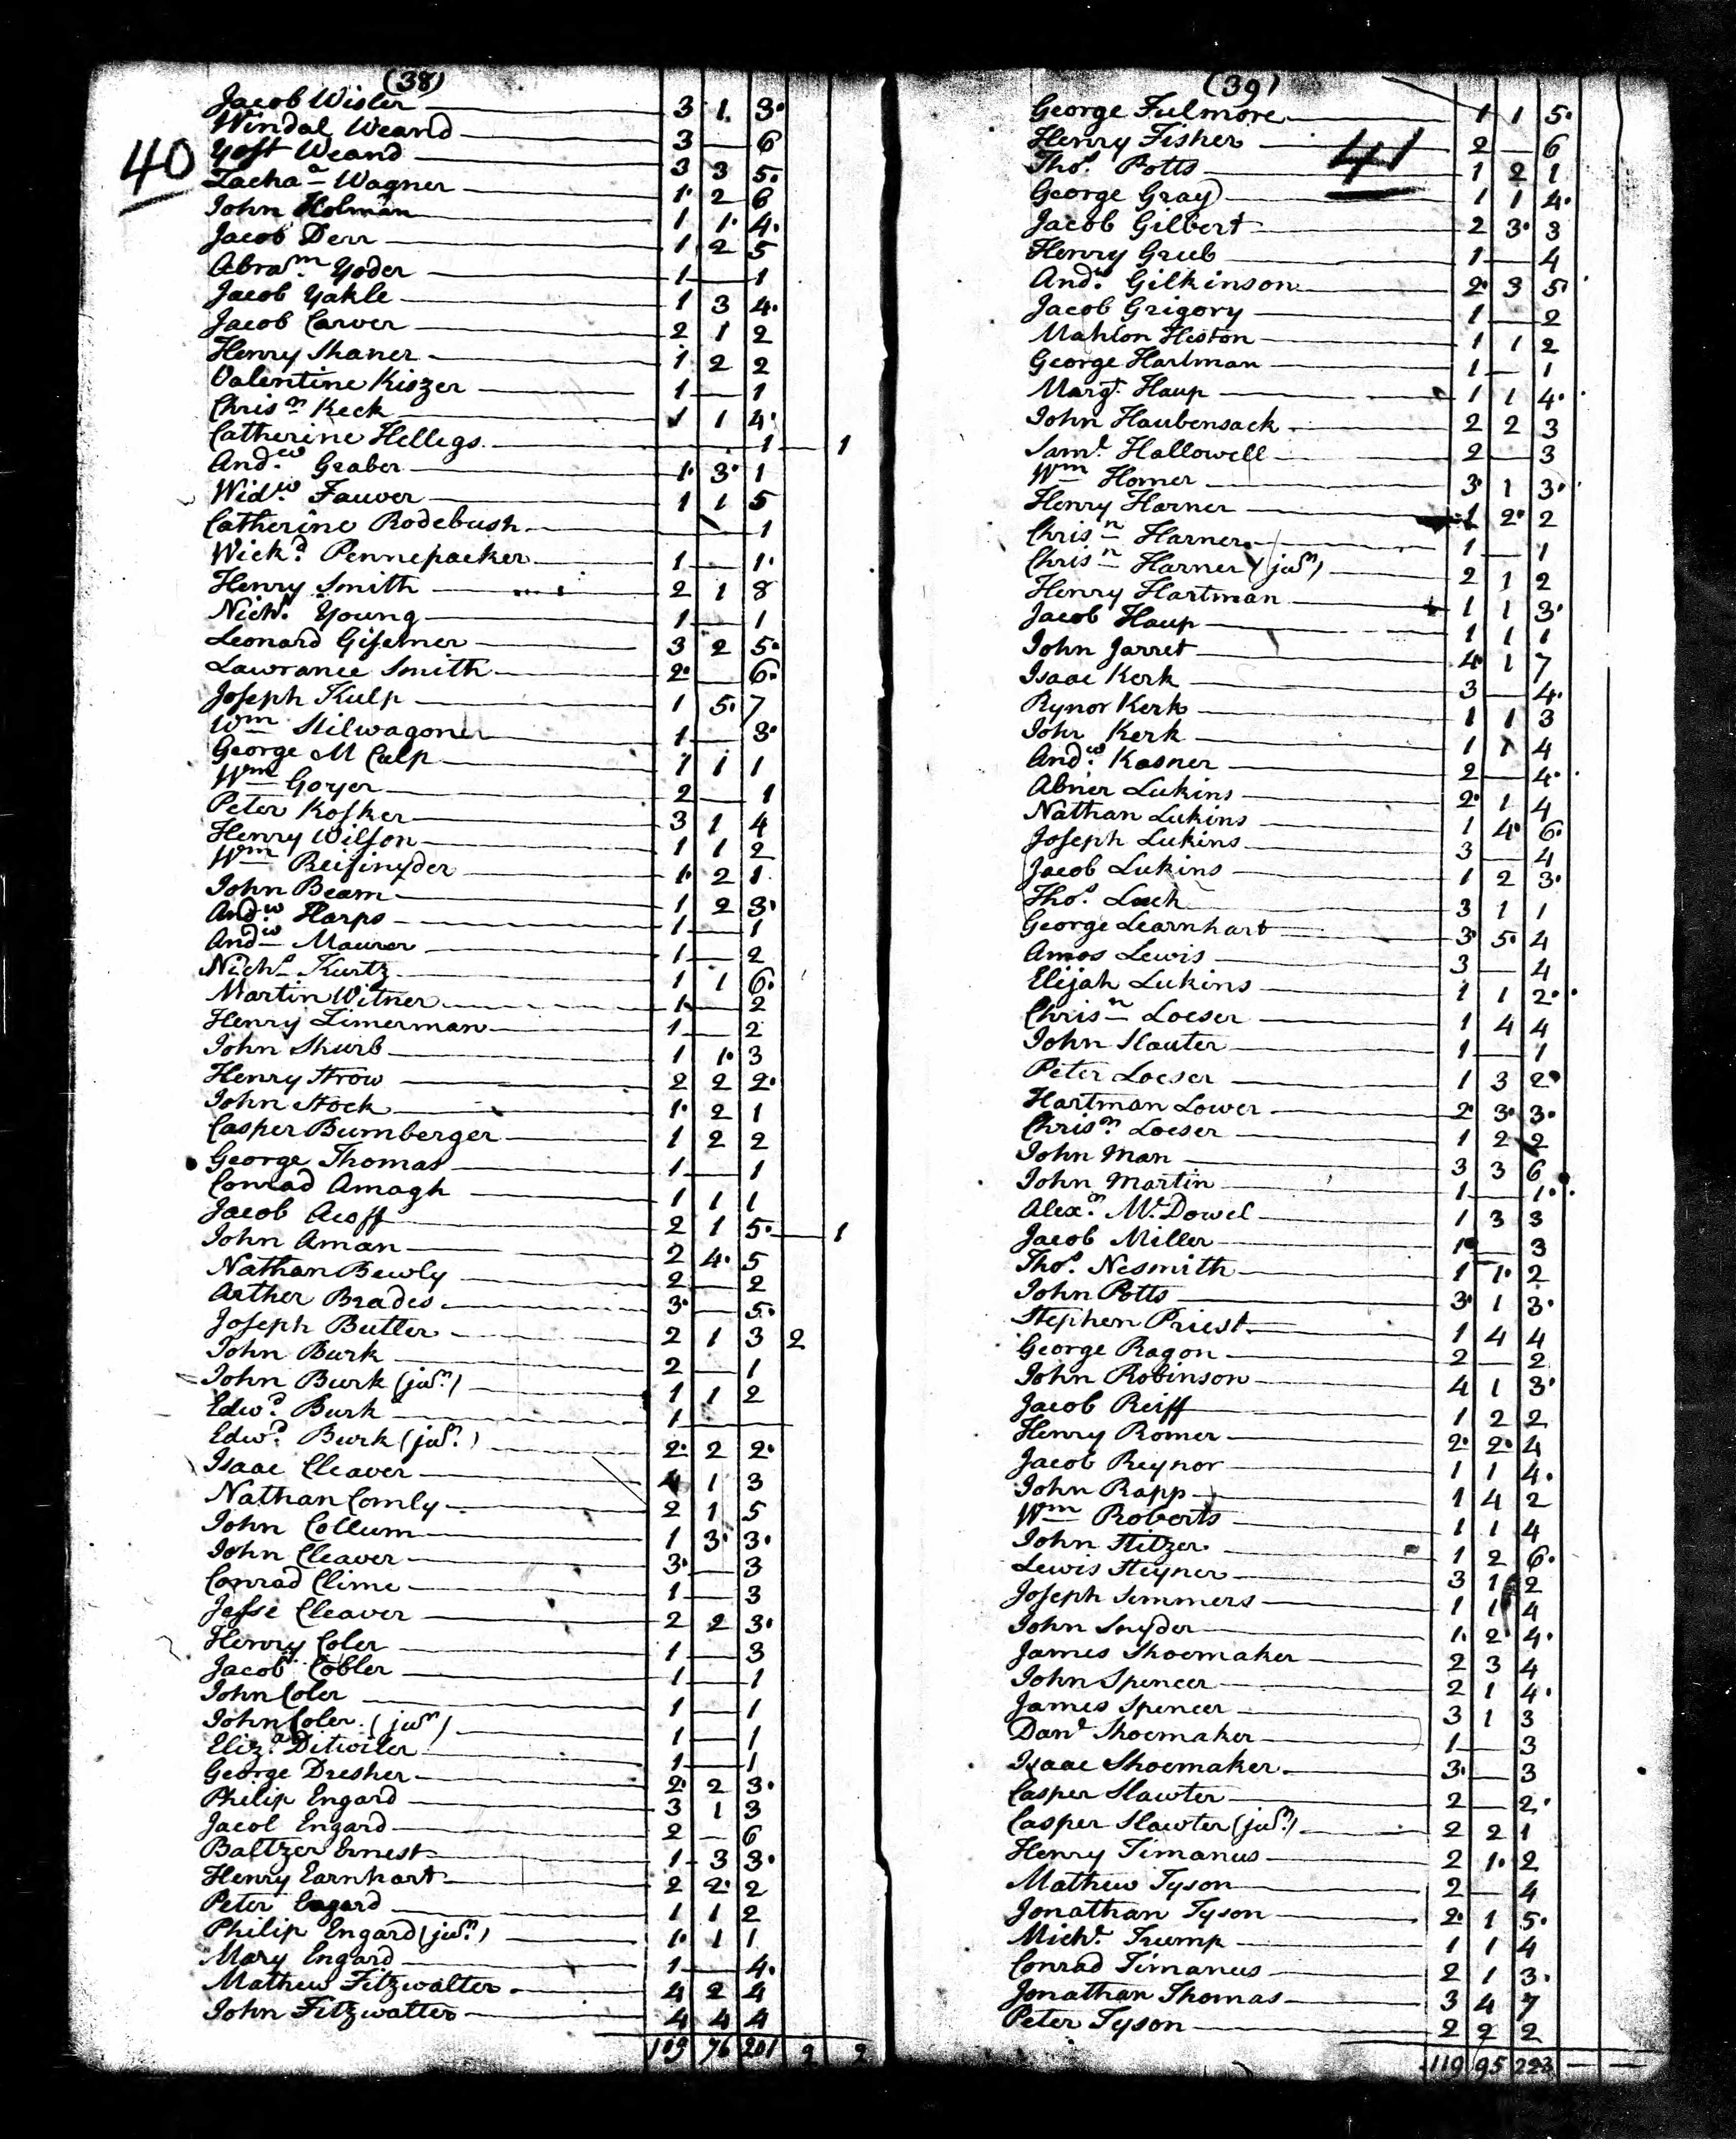 (38)
40
Jacob Wisler 3 1 3
Windal Weand 3 — 6
Yost Weand 3 3 5
Zacha^a Wagner 1 2 6
John Holman 1 1 4
Jacob Derr 1 2 5
Abra^m Yoder 1 — 1
Jacob Yakle 1 3 4
Jacob Carver 2 1 2
Henry Shaner 1 2 2
Valentine Kiszer 1 — 1
Chris^n Keck 1 1 4
Catherine Hellegs — — 1 — 1
And^w Graber 1 3 1
Wid^w Fauver 1 1 5
Catherine Rodebush — — 1
Wick^d Pennepacker 1 — 1
Henry Smith 2 1 8
Nich^s Young 1 — 1
Leonard Gisemer 3 2 5
Lawrance Smith 2 — 6
Joseph Kulp 1 5 7
W^m Stilwagoner 1 — 3
George M Culp 1 1 1
W^m Goyer 2 — 1
Peter Kosker 3 1 4
Henry Wilson 1 1 2
W^m Reisinyder 1 2 1
John Beam 1 2 3
And^w Harps 1 — 1
And^w Maurer 1 — 2
Nich^s Kurtz 1 1 6
Martin Witner 1 — 2
Henry Zimerman 1 — 2
John Shurb 1 1 3
Henry Strow 2 2 2
John Stock 1 2 1
Casper Bumberger 1 2 2
George Thomas 1 — 1
Conrad Amagh 1 1 1
Jacob Acoff 2 1 5 — 1
John Aman 2 4 5
Nathan Bewly 2 — 2
Arther Brades 3 — 5
Joseph Butler 2 1 3 2
John Burk 2 — 1
John Burk (jun^r) 1 1 2
Edw^d Burk 1 —
Edw^d Burk (jun^r) 2 2 2
Isaac Cleaver 4 1 3
Nathan Comly 2 1 5
John Collum 1 3 3
John Cleaver 3 — 3
Conrad Clime 1 — 3
Jesse Cleaver 2 2 3
Henry Coler 1 — 3
Jacob Cobler 1 — 1
John Coler 1 — 1
John Coler (jun^r) 1 — 1
Eliz^ab Ditwiler 1 — 1
George Dresher 2 2 3
Philip Engard 3 1 3
Jacob Engard 2 — 6
Baltzer Ernest 1 3 3
Henry Earnhart 2 2 2
Peter Engard 1 1 2
Philip Engard (jun^r) 1 1 1
Mary Engard 1 — 4
Mathew Fitzwalter 4 2 4
John Fitzwatter 4 4 4
119 76 201 2 2
(39)
41
George Fulmore 1 1 5
Henry Fisher 2 — 6
Tho^s Potts 1 2 1
George Gray 1 1 4
Jacob Gilbert 2 3 3
Henry Grub 1 — 4
And^w Gilkinson 2 3 5
Jacob Grigory 1 — 2
Mahlon Heston 1 1 2
George Hartman 1 — 1
Marg^t Haup 1 1 4
John Haubensack 2 2 3
Sam^l Hallowell 2 — 3
W^m Homer 3 1 3
Henry Harner 1 2 2
Chris^n Harner 1 — 1
Chris^n Harner (jun^r) 2 1 2
Henry Hartman 1 1 3
Jacob Haup 1 1 1
John Jarret 4 1 7
Isaac Kerk 3 — 4
Rynor Kerk 1 1 3
John Kerk 1 1 4
And^w Kasner 2 — 4
Abner Lukins 2 1 4
Nathan Lukins 1 4 6
Joseph Lukins 3 — 4
Jacob Lukins 1 2 3
Tho^s Lach 3 1 1
George Learnhart 3 5 4
Amos Lewis 3 — 4
Elijah Lukins 1 1 2
Chris^n Loeser 1 4 4
John Slauter 1 — 1
Peter Loeser 1 3 2
Hartman Lower 2 3 3
Chris^n Loeser 1 2 2
John Man 3 3 6
John Martin 1 — 1
Alex^r M^cDowel 1 3 3
Jacob Miller 1 — 3
Tho^s Nesmith 1 1 2
John Potts 3 1 3
Stephen Priest 1 4 4
George Ragon 2 — 2
John Robinson 4 1 3
Jacob Reiff 1 2 2
Henry Romer 2 2 4
Jacob Reynor 1 1 4
John Rapp 1 4 2
W^m Roberts 1 1 4
John Stitzer 1 2 6
Lewis Steyner 3 1 2
Joseph Simmers 1 1 4
John Snyder 1 2 4
James Shoemaker 2 3 4
John Spencer 2 1 4
James Spencer 3 1 3
Dan^l Shoemaker 1 — 3
Isaac Shoemaker 3 — 3
Casper Slawter 2 — 2
Casper Slawter (jun^r) 2 2 1
Henry Timanus 2 1 2
Mathew Tyson 2 — 4
Jonathan Tyson 2 1 5
Mich^l Trump 1 1 4
Conrad Timanus 2 1 3
Jonathan Thomas 3 4 7
Peter Tyson 2 2 2
119 95 223 — —